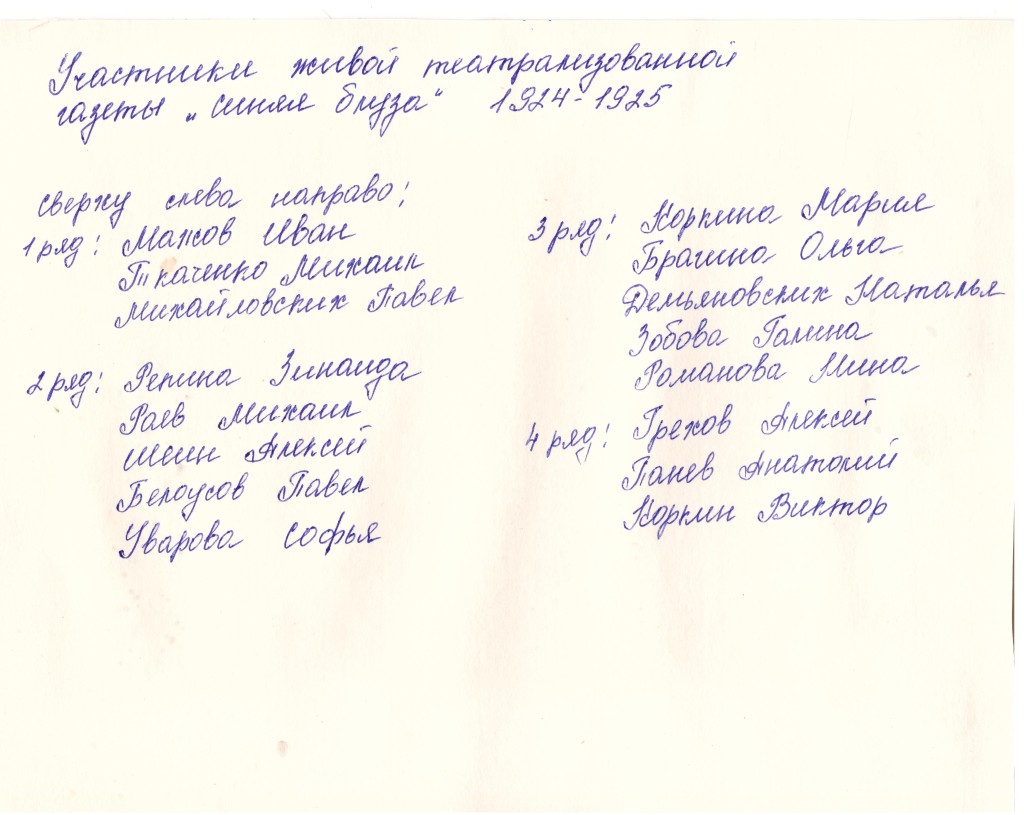 Участники живой театрализованной
газеты „синяя блуза" 1924-1925
сверху слева направо:
1 ряд: Мажов Иван
Ткаченко Михаил
Михайловских Павел
2 ряд: Репина Зинаида
Раев Михаил
Шеин Алексей
Белоусов Павел
Уварова Софья
3 ряд: Коркина Мария
Брагина Ольга
Демьяновских Наталья
Зобова Галина
Романова Нина
4 ряд: Грехов Алексей
Панев Анатолий
Коркин Виктор